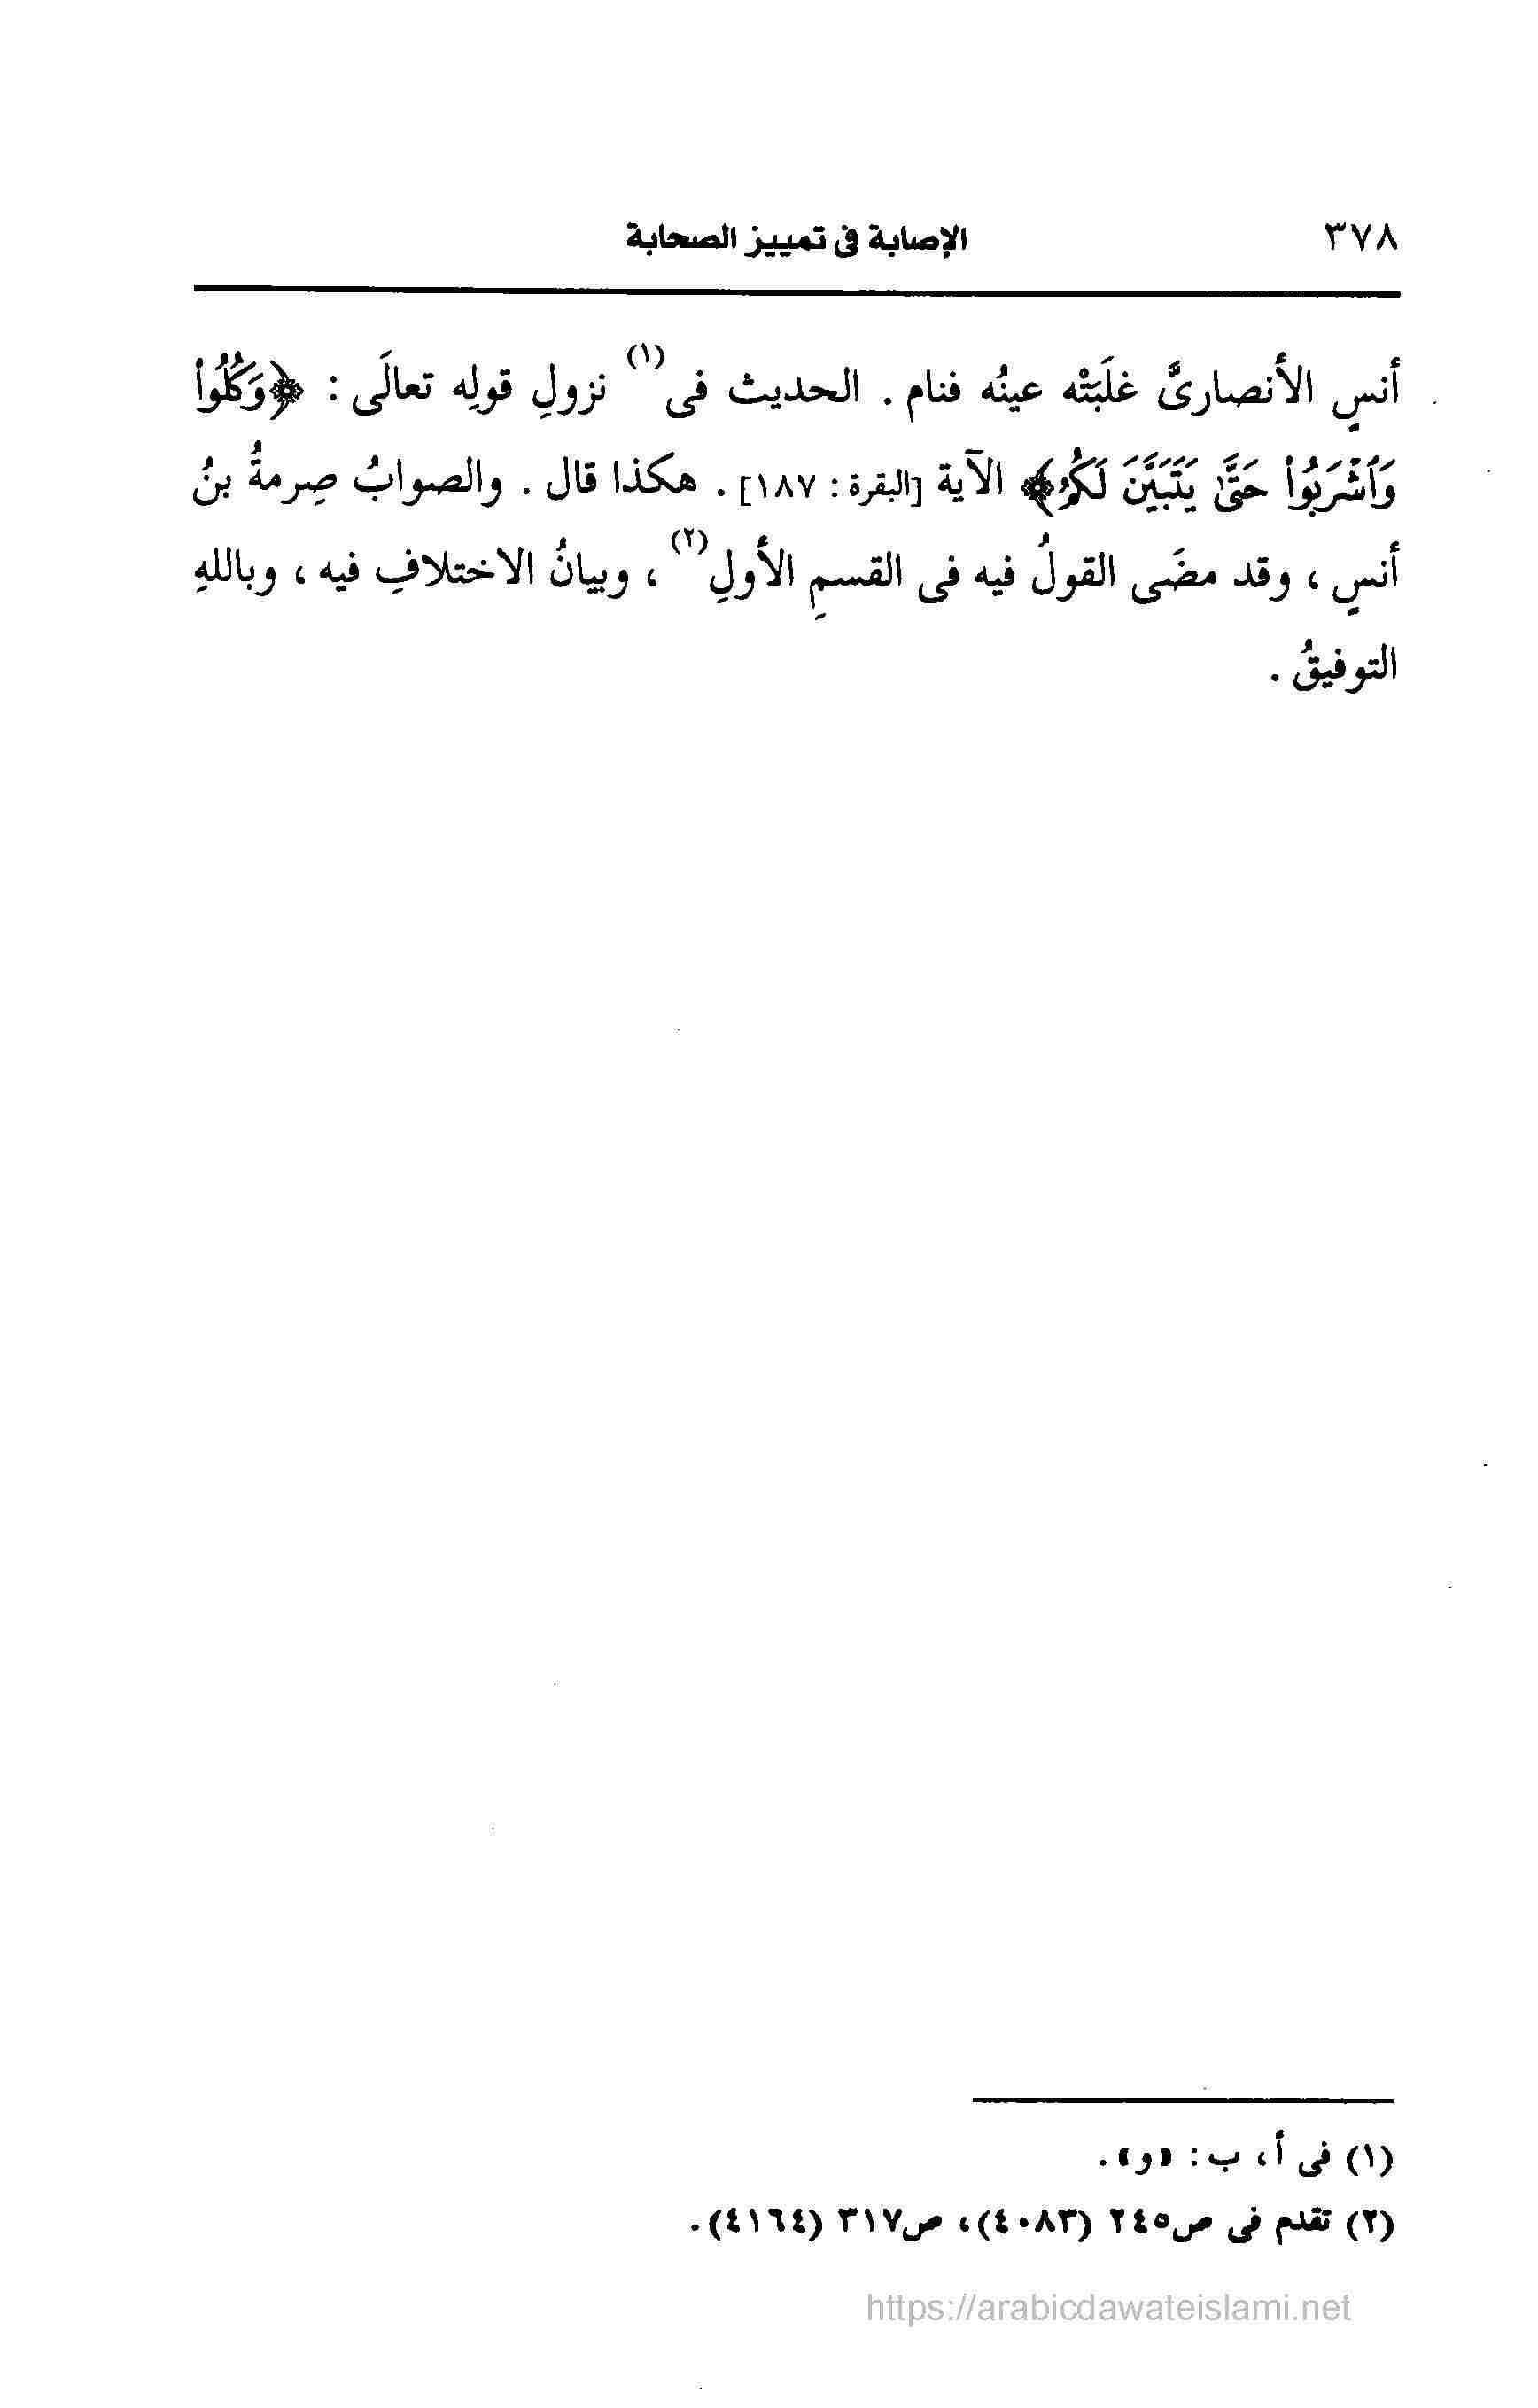 ٣٧٨ الإصابة فى تمييز الصحابة
أنسٍ الأنصارىَّ غلَبَتْه عينُه فنام . الحديث فى(١) نزولِ قولِه تعالَى : ﴿وَكُلُوا۟
وَٱشْرَبُوا۟ حَتَّىٰ يَتَبَيَّنَ لَكُمُ﴾ الآية [البقرة : ١٨٧] . هكذا قال . والصوابُ صِرمةُ بنُ
أنسٍ ، وقد مضَى القولُ فيه فى القسمِ الأولِ(٢) ، وبيانُ الاختلافِ فيه ، وباللهِ
التوفيقُ .
(١) فى أ، ب : «و» .
(٢) تقدم فى ص٢٤٥ (٤٠٨٣)، ص٣١٧ (٤١٦٤) .
https://arabicdawateislami.net